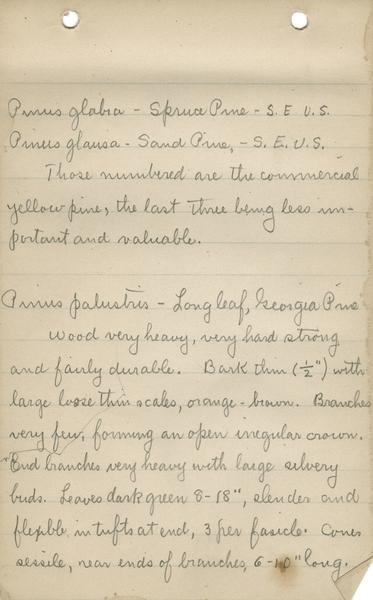 Pinus glabra - Spruce Pine - S. E. U.S.
Pinus glausa - Sand Pine, - S. E. U.S.
Those numbered are the commercial
yellow pine, the last three being less im-
portant and valuable.
Pinus palustris - Longleaf, Georgia Pine
Wood very heavy, very hard strong
and fairly durable. Bark thin (½") with
large loose thin scales, orange-brown. Branches
very few, forming an open irregular crown.
End branches very heavy with large silvery
buds. Leaves dark green 8-18", slender and
flexible in tufts at end, 3 per fasicle. Cones
sessile, near ends of branches, 6-10" long.